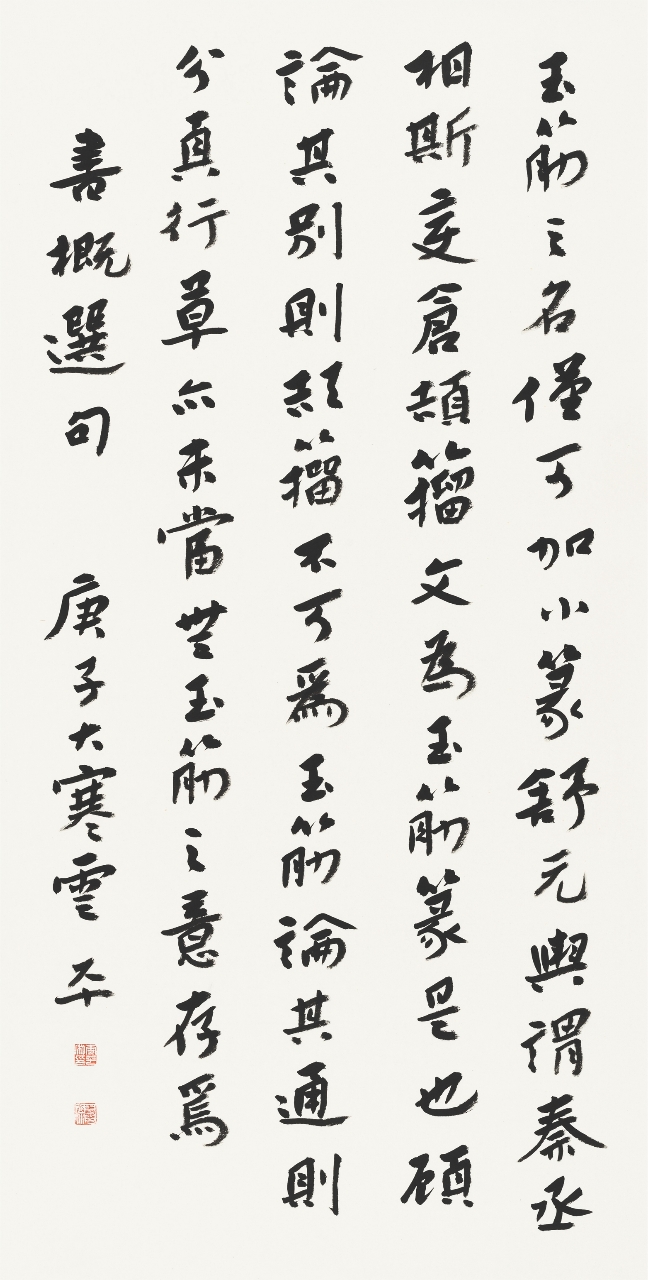 玉筋之名僅可加小篆舒元輿謂秦丞
相斯变倉頡籀文為玉筋篆是也顧
論其別則頡籀不可為玉筋論其通則
分真行草亦未嘗無玉筋之意存焉
書概選句 庚子大寒雲平